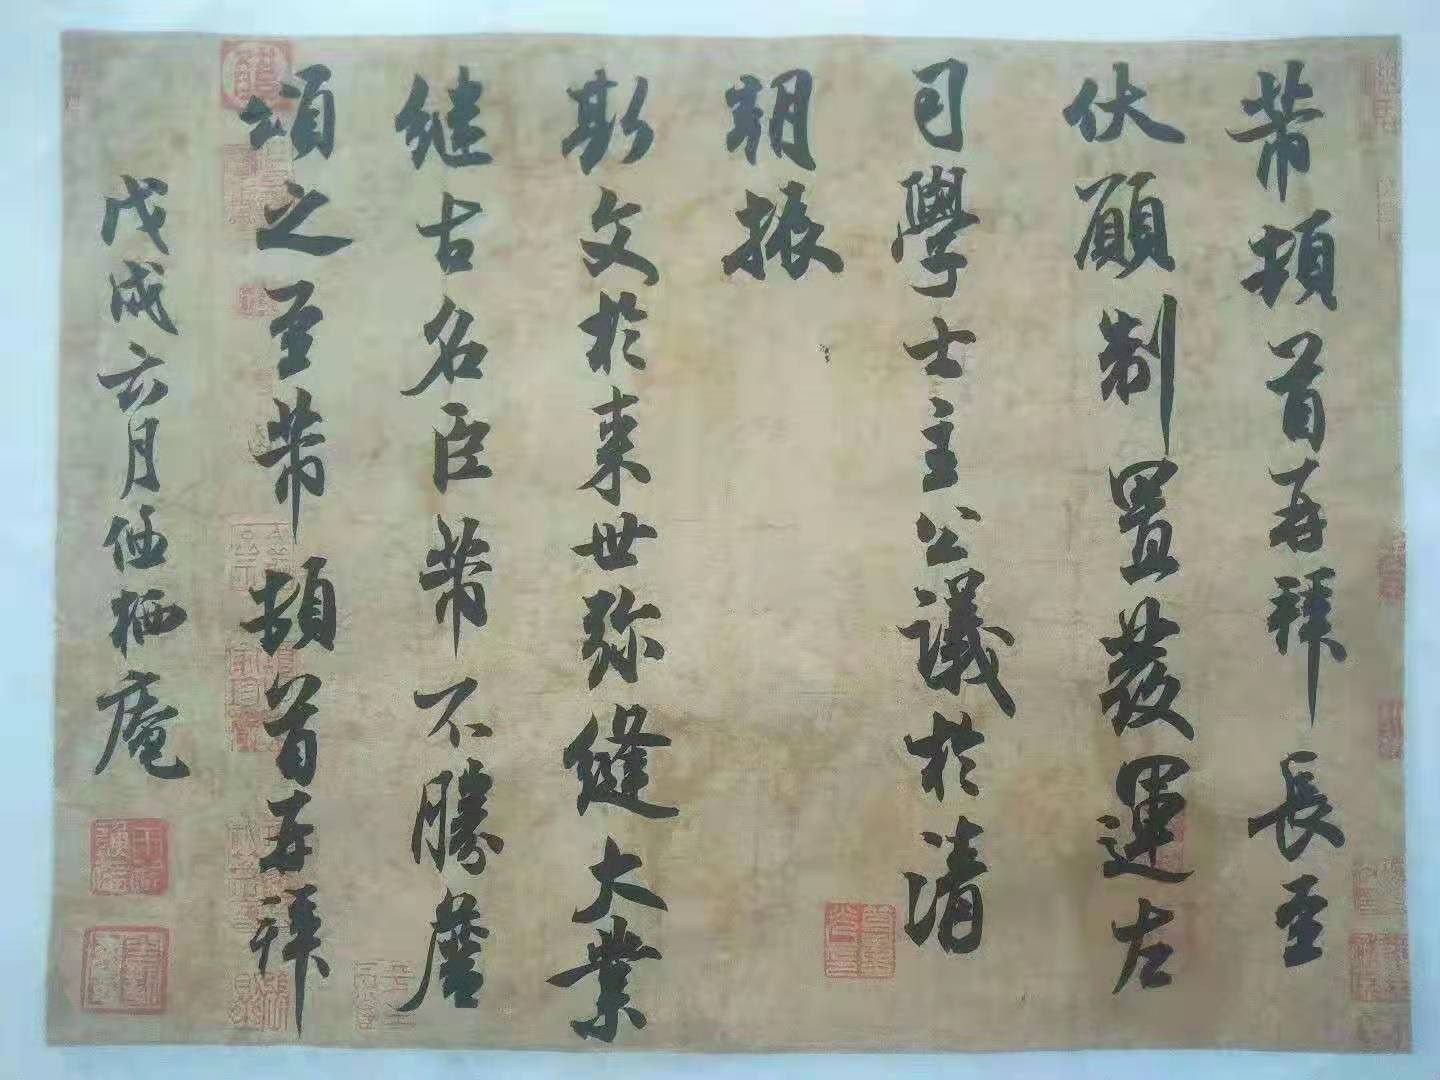 芾頓首再拜長至
伏願制置發運左
司學士主公議於清
朝振
斯文於来世弥縫大業
继古名臣芾不勝詹
頌之至芾頓首再拜
戊戌六月栖庵